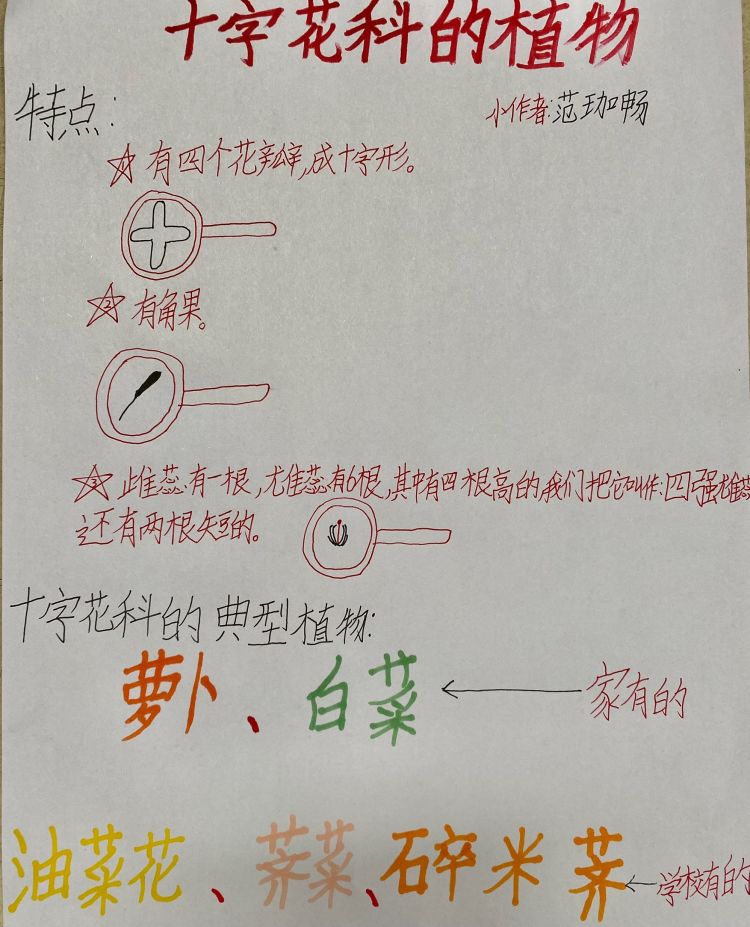 十字花科的植物
特点:
小作者:范珈畅
1 有四个花瓣,成十字形。
2 有角果。
3 雌蕊有一根,雄蕊有6根,其中有四根高的,我们把它叫作:四强雄蕊
还有两根矢豆的。
十字花科的典型植物:
萝卜、白菜 ← 家有的
油菜花、荠菜、碎米荠 ← 学校有的